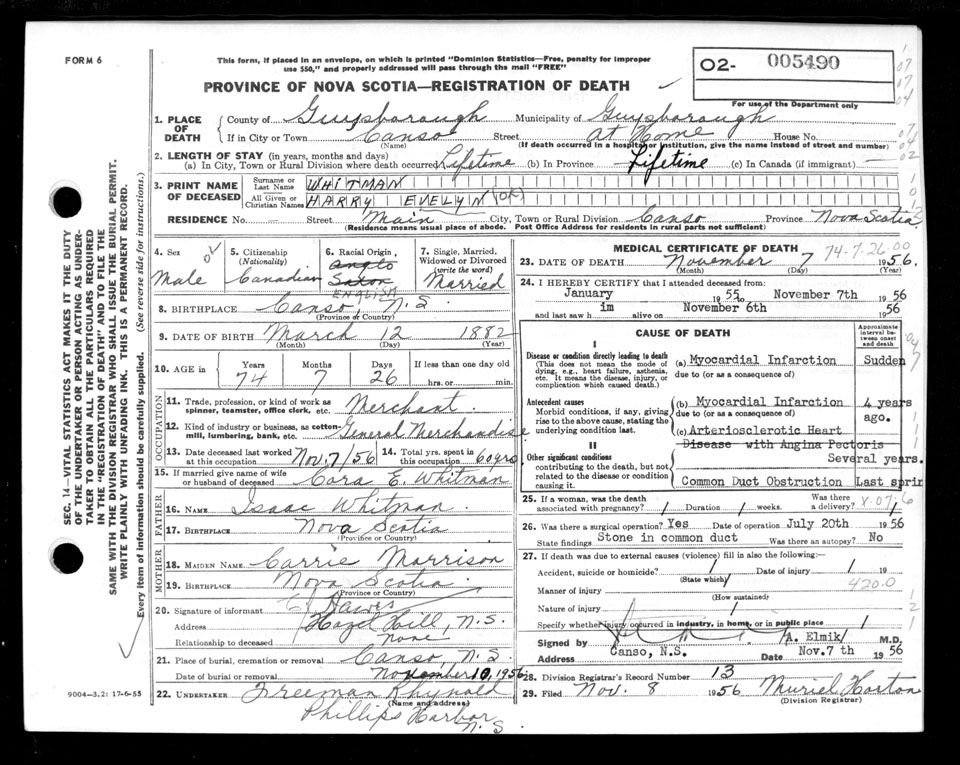 FORM 6
This form, if placed in an envelope, on which is printed "Dominion Statistics—Free, penalty for improper
use $50," and properly addressed will pass through the mail "FREE"
O2- 005490
PROVINCE OF NOVA SCOTIA—REGISTRATION OF DEATH
For use of the Department only
1. PLACE OF DEATH
County of Guysborough Municipality of Guysborough
If in City or Town Canso Street At Home House No.
(Name) (If death occurred in a hospital or institution, give the name instead of street and number)
2. LENGTH OF STAY (in years, months and days)
(a) In City, Town or Rural Division where death occurred Lifetime (b) In Province Lifetime (c) In Canada (if immigrant) —
3. PRINT NAME OF DECEASED
Surname or Last Name WHITMAN
All Given or Christian Names HARRY EVELYN (OK)
RESIDENCE No. Street Main City, Town or Rural Division Canso Province Nova Scotia
(Residence means usual place of abode. Post Office Address for residents in rural parts not sufficient)
4. Sex Male
5. Citizenship (Nationality) Canadian
6. Racial Origin Anglo Saxon ENGLISH
7. Single, Married, Widowed or Divorced (write the word) Married
8. BIRTHPLACE Canso, N.S
(Province or Country)
9. DATE OF BIRTH March 12 1882
(Month) (Day) (Year)
10. AGE in Years Months Days If less than one day old
74 7 26 hrs. or min.
OCCUPATION
11. Trade, profession, or kind of work as spinner, teamster, office clerk, etc. Merchant
12. Kind of industry or business, as cotton-mill, lumbering, bank, etc. General Merchandise
13. Date deceased last worked at this occupation Nov. 7/56 14. Total yrs. spent in this occupation 60 yrs
15. If married give name of wife or husband of deceased Cora E. Whitman
FATHER
16. NAME Isaac Whitman
17. BIRTHPLACE Nova Scotia
(Province or Country)
MOTHER
18. MAIDEN NAME Carrie Morrison
19. BIRTHPLACE Nova Scotia
(Province or Country)
20. Signature of informant
Address Hazel Hill, N.S.
Relationship to deceased None
21. Place of burial, cremation or removal Canso, N.S
Date of burial or removal November 10, 1956
22. UNDERTAKER Freeman Rhynold
(Name and address)
Phillips Harbor
N.S
MEDICAL CERTIFICATE OF DEATH
23. DATE OF DEATH November 7 1956.
74-7-26.00
(Month) (Day) (Year)
24. I HEREBY CERTIFY that I attended deceased from:
January 1955 November 7th 1956
and last saw him alive on November 6th 1956
CAUSE OF DEATH
Approximate interval between onset and death
I
Disease or condition directly leading to death
(This does not mean the mode of dying, e.g., heart failure, asthenia, etc. It means the disease, injury, or complication which caused death.)
(a) Myocardial Infarction Sudden
due to (or as a consequence of)
Antecedent causes
Morbid conditions, if any, giving rise to the above cause, stating the underlying condition last.
(b) Myocardial Infarction 4 years ago.
due to (or as a consequence of)
(c) Arteriosclerotic Heart
Disease with Angina Pectoris
Several years.
II
Other significant conditions
contributing to the death, but not related to the disease or condition causing it.
Common Duct Obstruction Last sprin
25. If a woman, was the death associated with pregnancy? / Duration / weeks. Was there a delivery? /
26. Was there surgical operation? Yes Date of operation July 20th 1956
State findings Stone in common duct Was there an autopsy? No
27. If death was due to external causes (violence) fill in also the following:—
Accident, suicide or homicide? / Date of injury / 19
(State which)
Manner of injury 420.0
(How sustained)
Nature of injury /
Specify whether injury occurred in industry, in home, or in public place /
Signed by A. Elmik M.D.
Address Canso, N.S. Date Nov.7 th 1956
28. Division Registrar's Record Number 13
29. Filed Nov. 8 1956 Muriel Horton
(Division Registrar)
SEC. 14—VITAL STATISTICS ACT MAKES IT THE DUTY
OF THE UNDERTAKER OR PERSON ACTING AS UNDER-
TAKER TO OBTAIN ALL THE PARTICULARS REQUIRED
IN THE "REGISTRATION OF DEATH" AND TO FILE THE
SAME WITH THE DIVISION REGISTRAR WHO SHALL ISSUE THE BURIAL PERMIT.
WRITE PLAINLY WITH UNFADING INK. THIS IS A PERMANENT RECORD.
Every item of information should be carefully supplied. (See reverse side for instructions.)
9004—3.2: 17-6-55